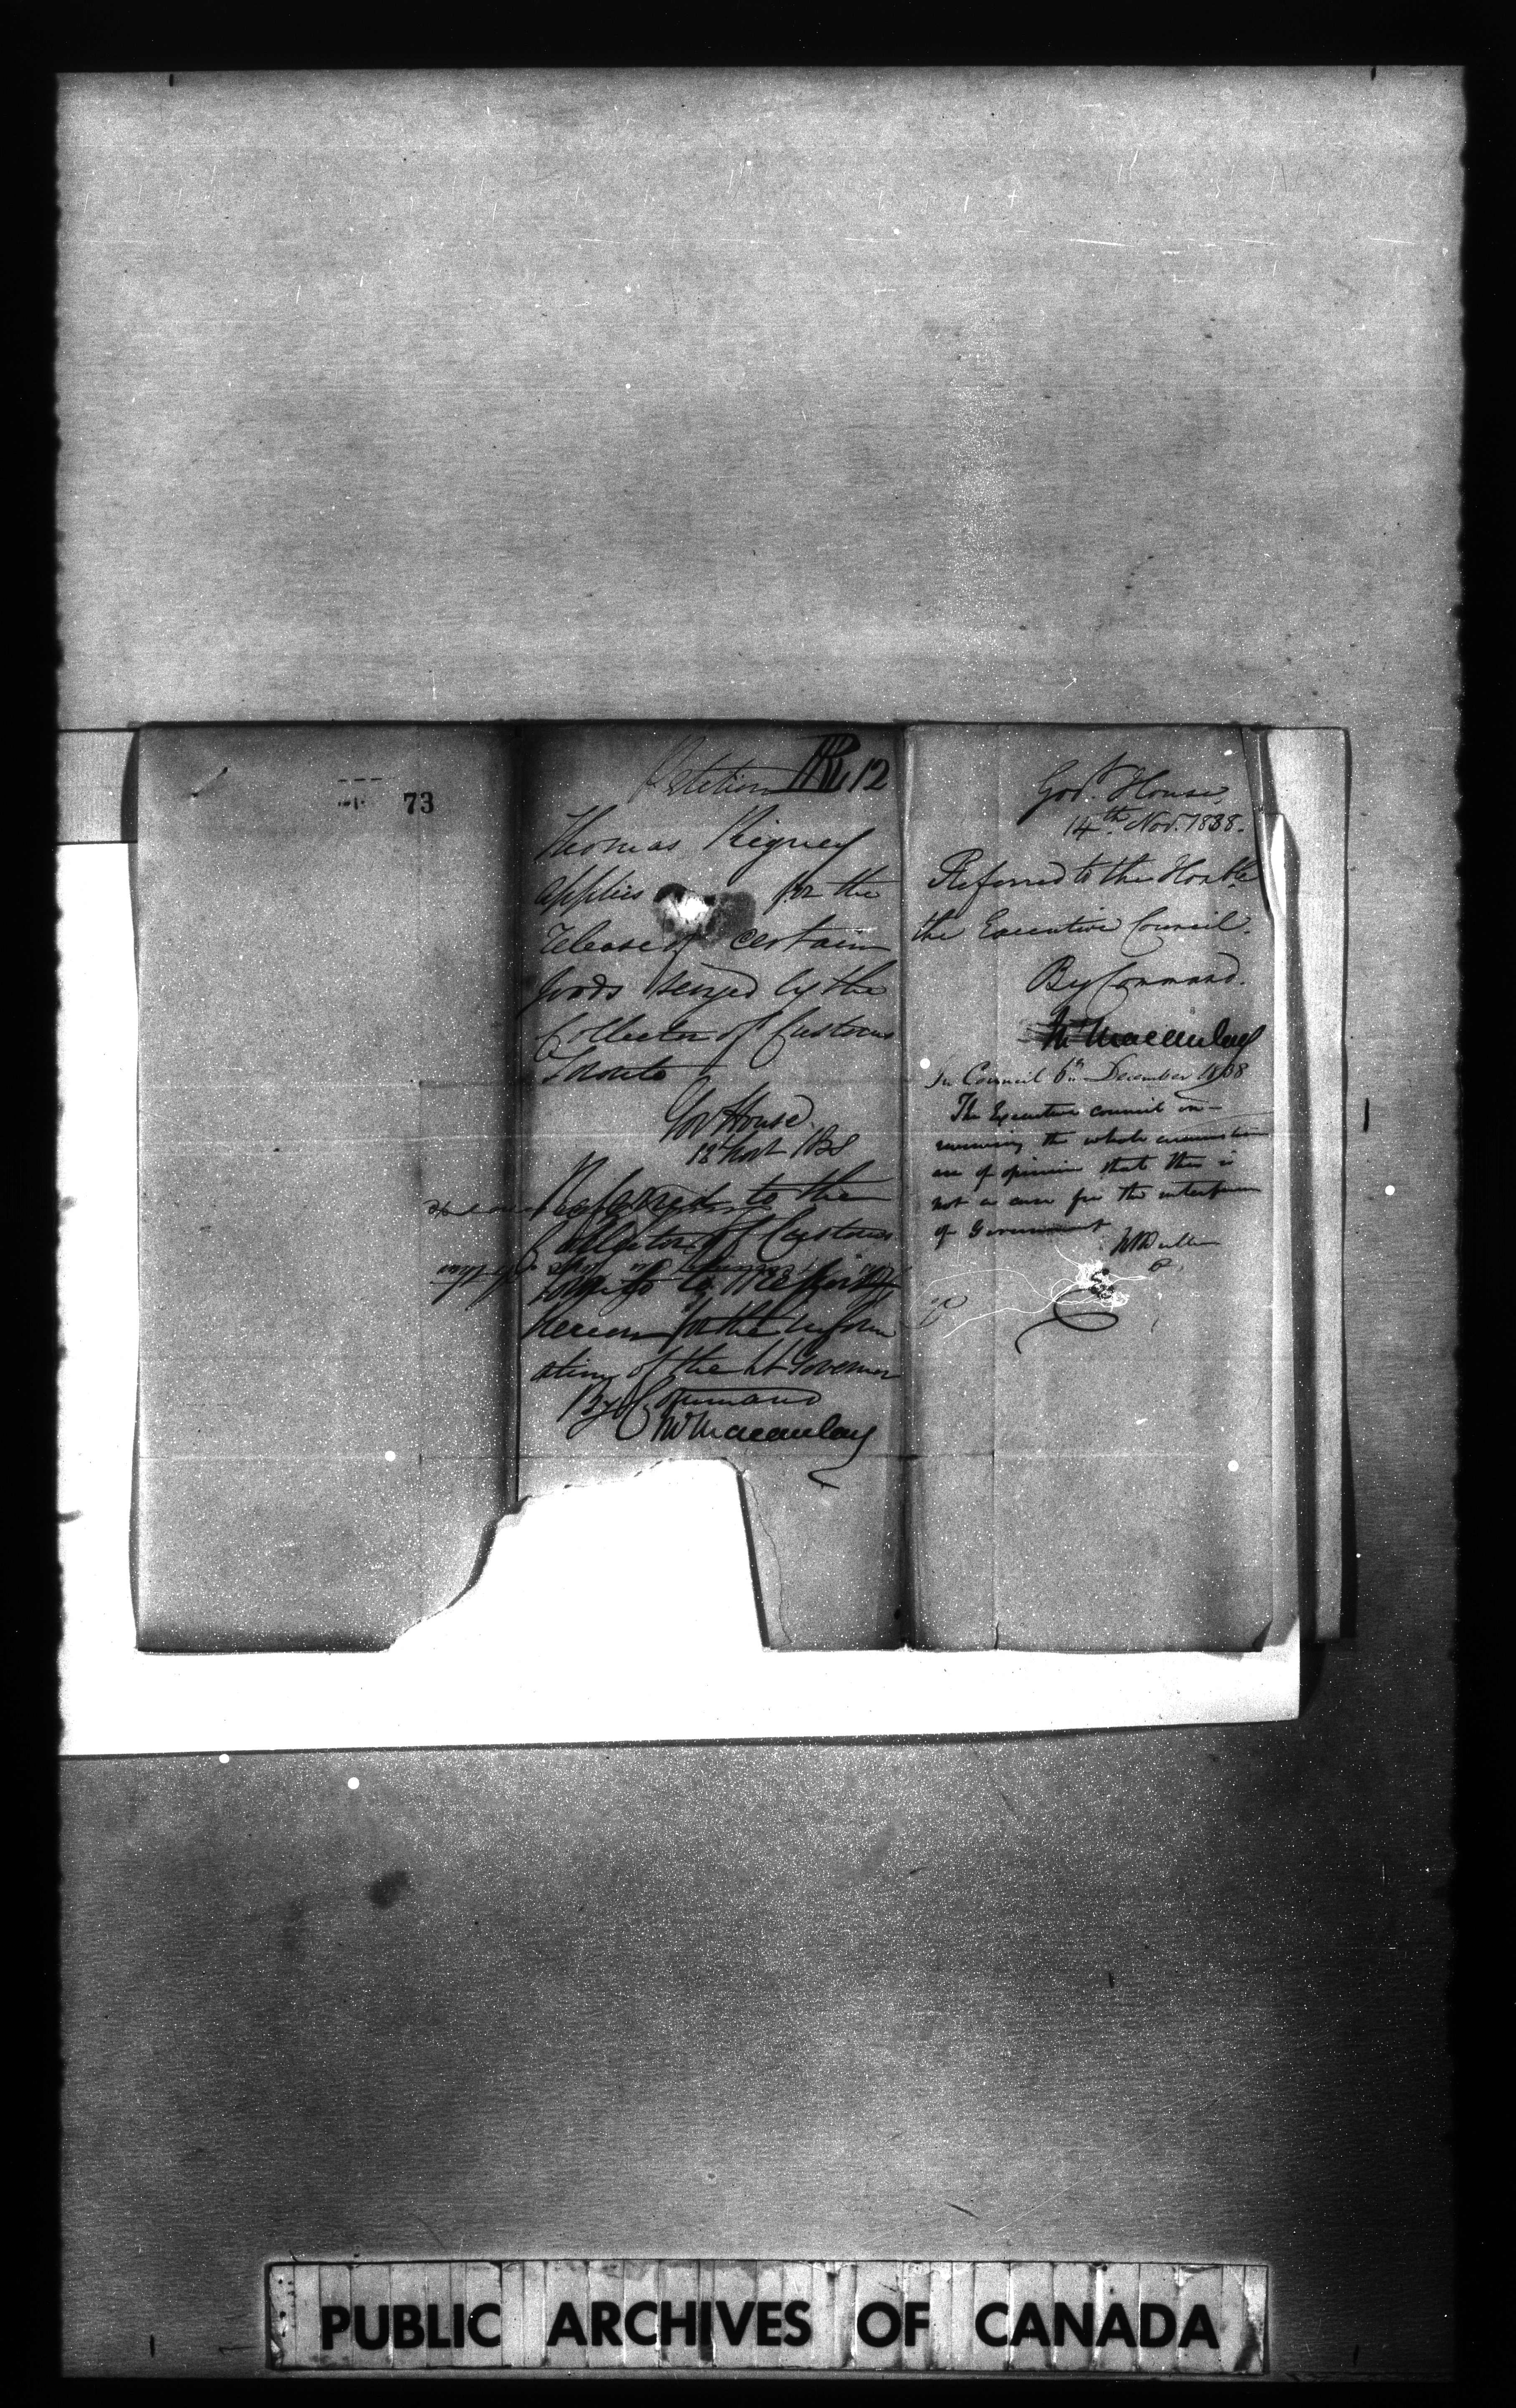 73
Petition R 12
Thomas Rigney
applies for the
release of certain
goods seized by the
Collector of Customs
Toronto
Gov House
12 Nov 1838
Referred to the
Collector of Customs
to
hereon for the inform
ation of the Lt Governor
By Command
Macaulay
Govt. House
14th Nov. 1838.
Referred to the Honble
the Executive Council.
By Command.
Macaulay
In Council 6th December 1838
The Executive Council on
the whole
are of opinion that this is
not a case for the interference
of Government
PUBLIC ARCHIVES OF CANADA